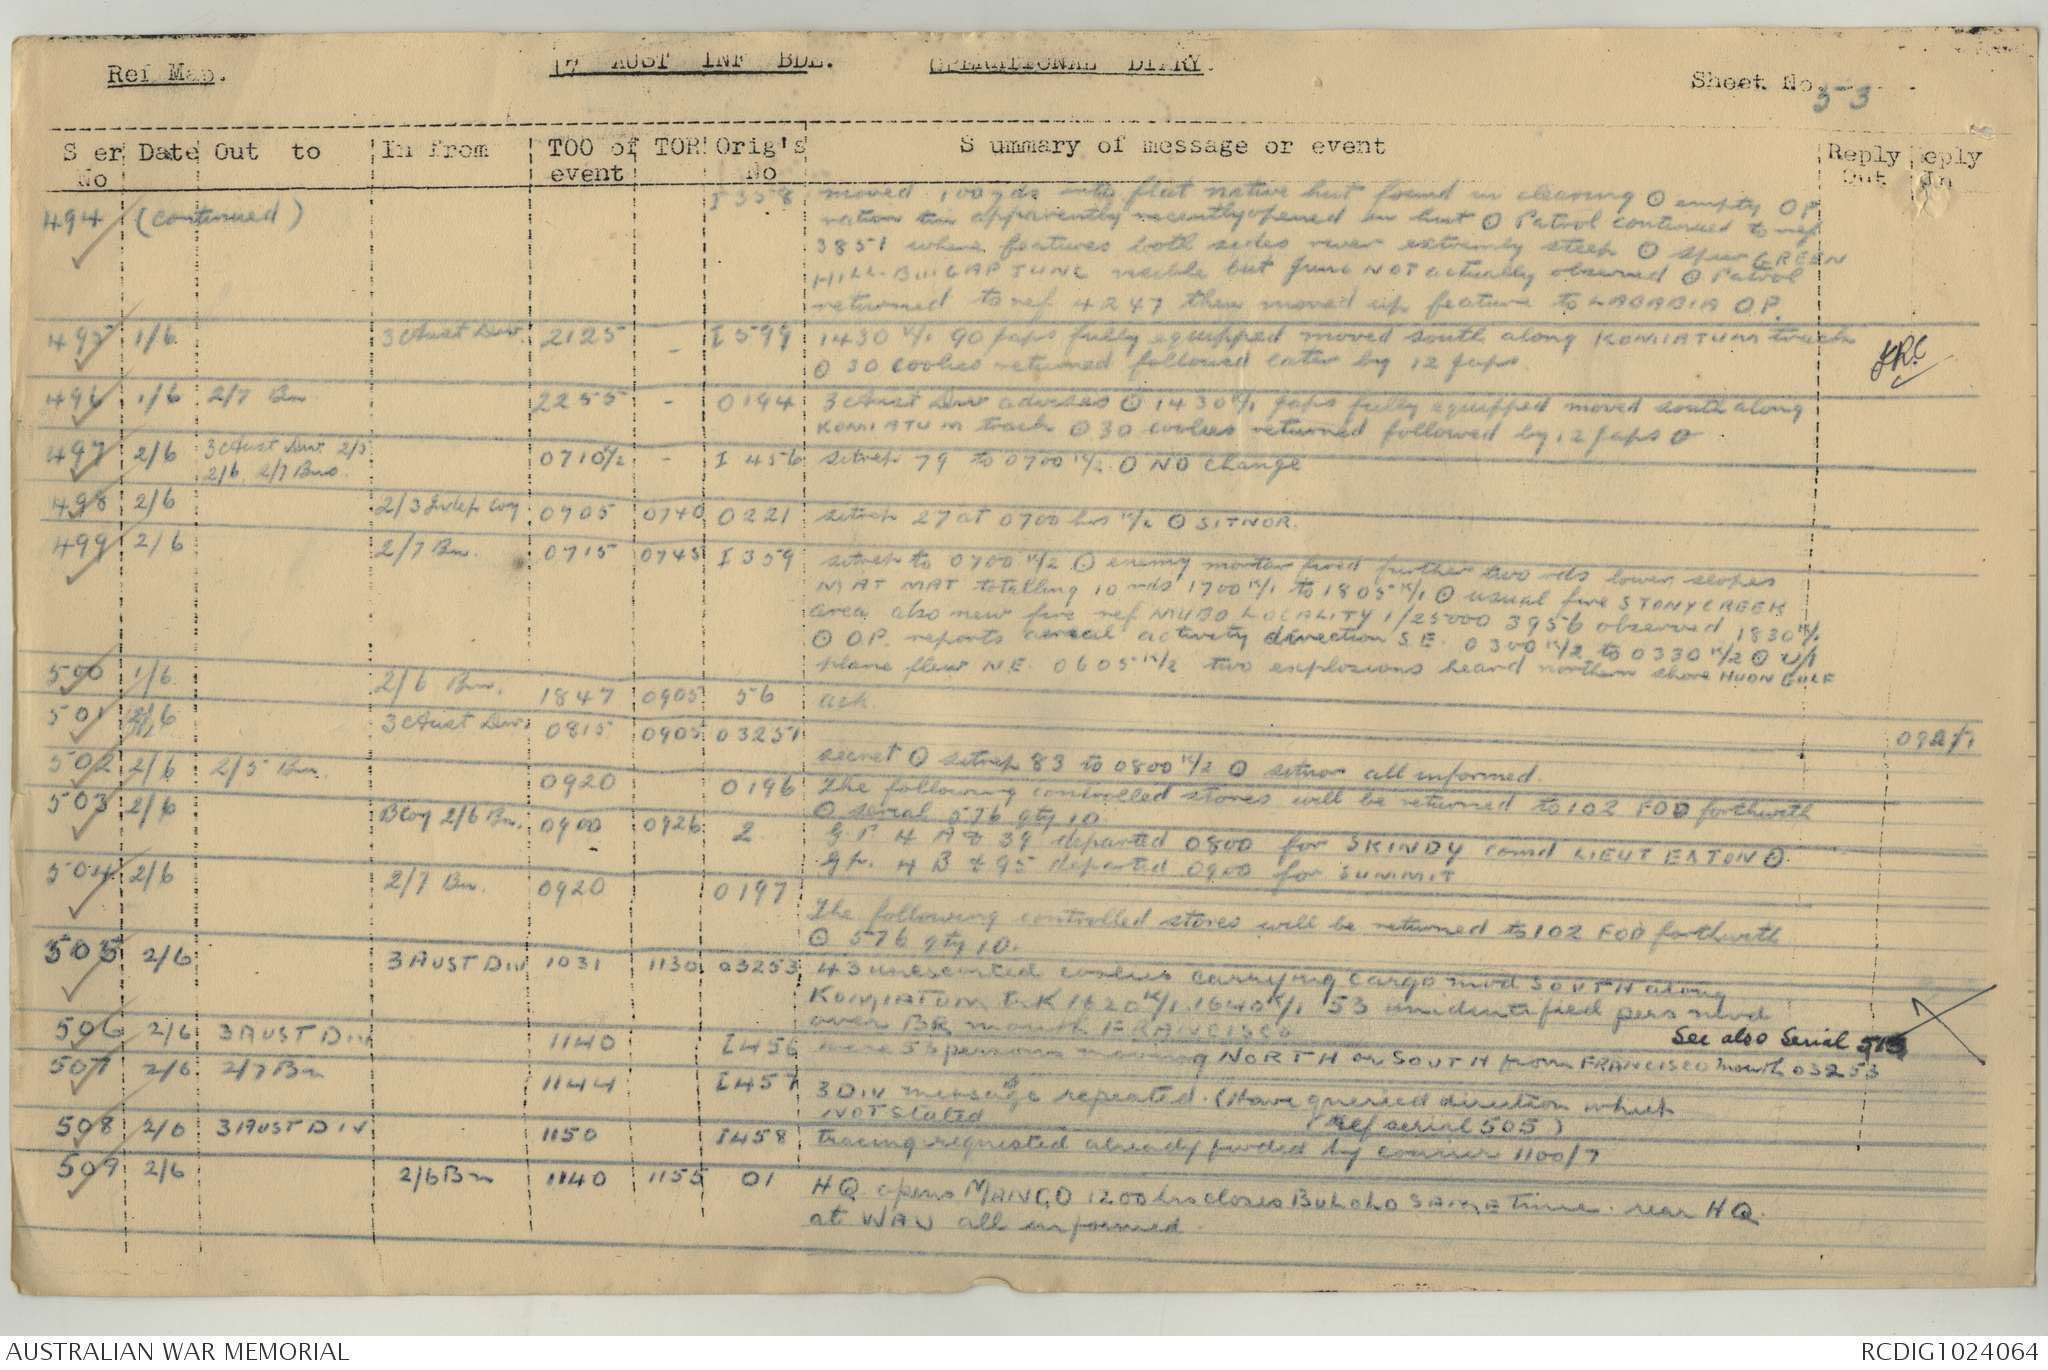 Ref Map.
17 AUST INF BDE. OPERATIONAL DIARY.
Sheet No. 53
Ser No Date Out to In From TOO of event TOR Orig's No Summary of message or event Reply Out Reply In
494 (continued) I 358 moved 100 yds into flat native hut found in clearing ⊙ empty
ration tin apparently recently opened in hut ⊙ Patrol continued to ref
3851 where features both sides river extremely steep ⊙ spur GREEN
HILL - BUIGAP JUNC visible but junc NOT actually observed ⊙ Patrol
returned to ref 4247 then moved up feature to LABABIA O.P.
495 1/6 3 Aust Div. 2125 - I 599 1430 K/1 90 Japs fully equipped moved south along KOMIATUM track
⊙ 30 coolies returned followed later by 12 Japs.
496 1/6 2/7 Bn. 2255 - 0194 3 Aust Div advises ⊙ 1430 K/1 Japs fully equipped moved south along
KOMIATUM track ⊙ 30 coolies returned followed by 12 Japs ⊙
497 2/6 3 Aust Div. 2/5 0710K/2 - I 456 sitrep 79 to 0700 K/2 ⊙ NO change
2/6, 2/7 Bns.
498 2/6 2/3 Indep Coy 0705 0740 0221 sitrep 27 at 0700 hrs K/2 ⊙ SITNOR.
499 2/6 2/7 Bn. 0715 0745 I 359 sitrep to 0700 K/2 ⊙ enemy mortar fired further two rds lower slopes
MAT MAT totalling 10 rds 1700 K/1 to 1805 K/1 ⊙ usual fire STONY CREEK
area also new fire ref MUBO LOCALITY 1/25000 3956 observed 1830 K/1
⊙ O.P. reports aerial activity direction S.E. 0300 K/2 to 0330 K/2 ⊙ U/I
plane flew N.E. 0605 K/2 two explosions heard northern shore HUON GULF
500 1/6 2/6 Bn. 1847 0905 56 ack.
501 2/6 3 Aust Div. 0815 0905 03251 secret ⊙ sitrep 83 to 0800 K/2 ⊙ sitnor all informed.
502 2/6 2/5 Bn. 0920 0196 The following controlled stores will be returned to 102 FOD forthwith
⊙ serial 576 qty 10.
503 2/6 B Coy 2/6 Bn. 0900 0926 2 GP. 4 A & 39 departed 0800 for SKINDY comd LIEUT EATON ⊙
GP. 4 B & 95 departed 0900 for SUMMIT
504 2/6 2/7 Bn. 0920 0197 The following controlled stores will be returned to 102 FOD forthwith
⊙ 576 qty 10.
505 2/6 3 AUST DIV 1031 1130 03253 43 unescorted coolies carrying cargo mvd SOUTH along
KOMIATUM trk 1620 K/1. 1640 K/1 53 unidentified pers mvd
over BR mouth FRANCISCO
See also Serial 515
506 2/6 3 AUST DIV 1140 I 456 were 53 persons moving NORTH or SOUTH from FRANCISCO mouth 03253
507 2/6 2/7 Bn 1144 I 457 3 DIV message repeated. (Have queried direction which
NOT stated (Ref serial 505)
508 2/6 3 AUST DIV 1150 I 458 tracing requested already fwded by courier 1100/7
509 2/6 2/6 Bn 1140 1155 01 HQ opens MANGO 1200 hrs closes BULOLO SAME time. rear HQ.
at WAU all informed.
AUSTRALIAN WAR MEMORIAL
RCDIG1024064